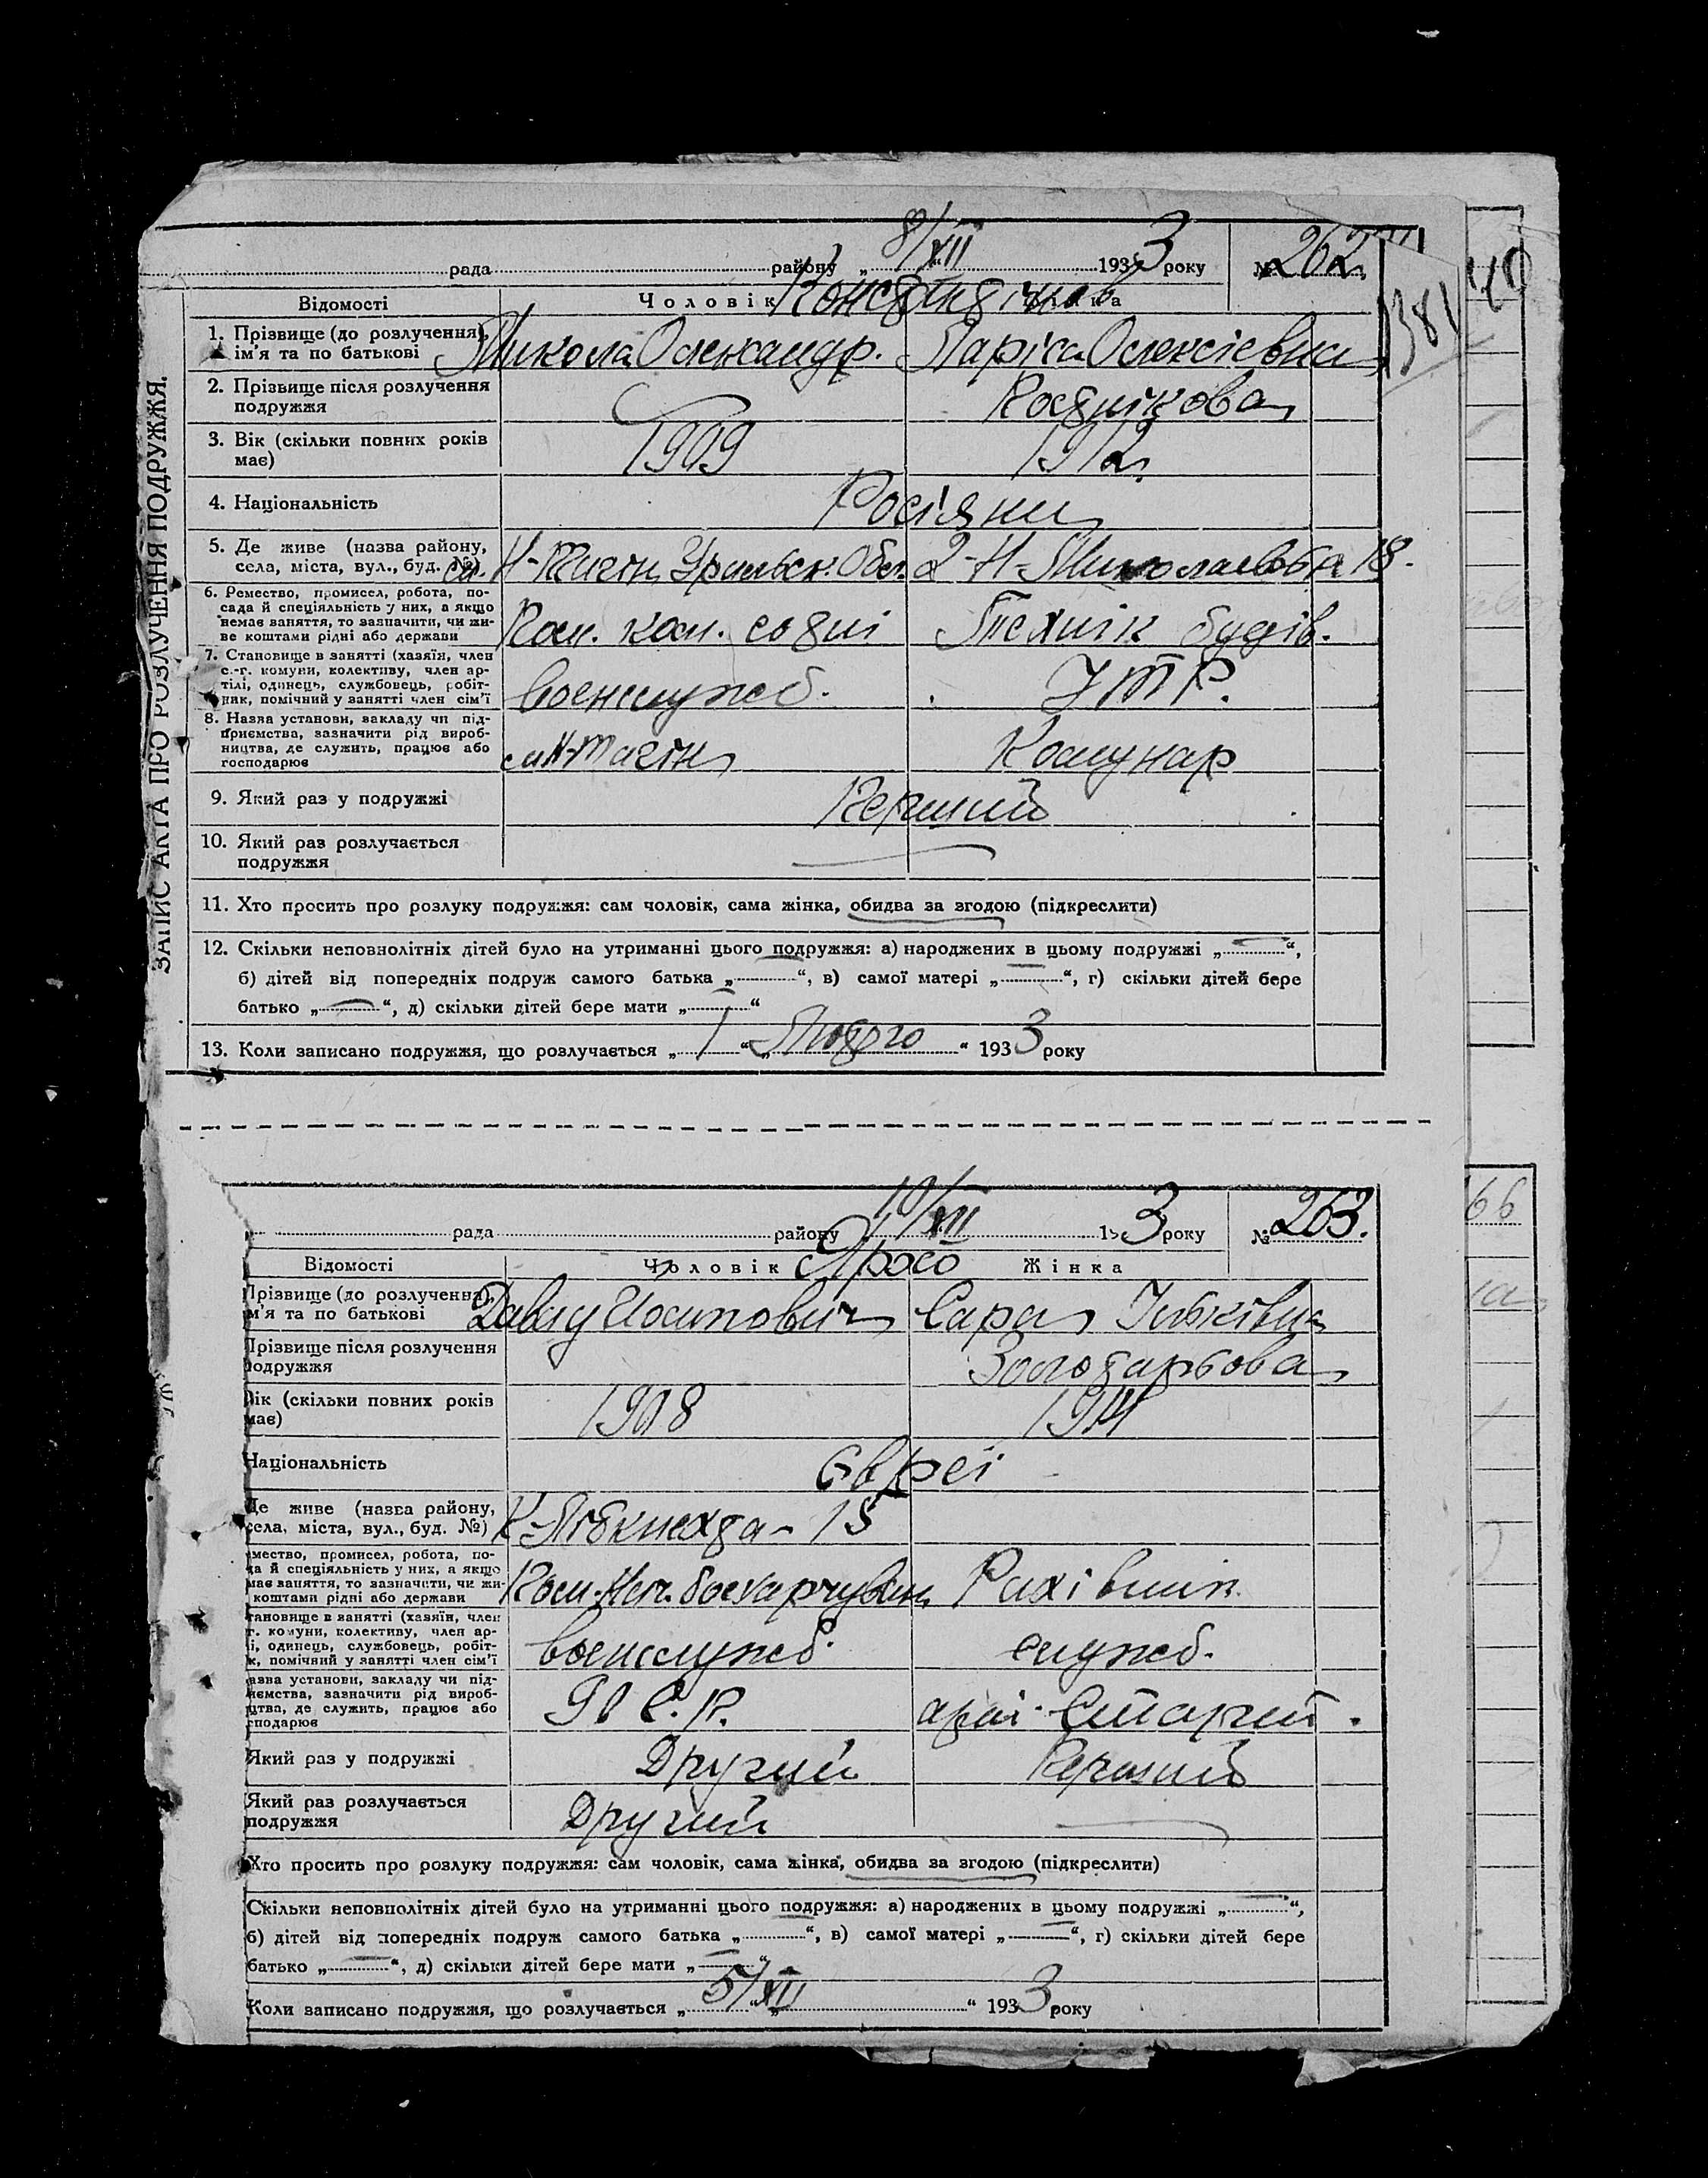 ЗАПИС АКТА ПРО РОЗЛУЧЕННЯ ПОДРУЖЖЯ.
рада району „ 8/XII 1933 року № 262
Відомості Чоловік Жінка
381
1. Прізвище (до розлучення),
ім'я та по батькові
Микола Олександр. Лариса Олексієвна
2. Прізвище після розлучення
подружжя
3. Вік (скільки повних років
має)
1909 1912
4. Національність
Росіяни
5. Де живе (назва району,
села, міста, вул., буд. №)
Уральск. Обл. 2-Н-Миколаевська 18.
6. Ремество, промисел, робота, по-
сада й спеціяльність у них, а якщо
немає заняття, то зазначити, чи жи-
ве коштами рідні або держави
Ком. ком. сотні Технік будів.
7. Становище в занятті (хазяїн, член
с.-г. комуни, колективу, член ар-
тілі, одинець, службовець, робіт-
ник, помічний у занятті член сім'ї
военслужб. ІТР.
8. Назва установи, закладу чи під-
приємства, зазначити рід вироб-
ництва, де служить, працює або
господарює
Комунар
9. Який раз у подружжі
Перший
10. Який раз розлучається
подружжя
—
11. Хто просить про розлуку подружжя: сам чоловік, сама жінка, обидва за згодою (підкреслити)
12. Скільки неповнолітніх дітей було на утриманні цього подружжя: а) народжених в цьому подружжі „—“,
б) дітей від попередніх подруж самого батька „—“, в) самої матері „—“, г) скільки дітей бере
батько „—“, д) скільки дітей бере мати „—“
13. Коли записано подружжя, що розлучається „1“ „Лютого“ 1933 року
рада району 10/XII 1933 року № 263.
Відомості Чоловік Жінка
Прізвище (до розлучення),
ім'я та по батькові
Давид Йосипович Сара
Прізвище після розлучення
подружжя
Золотарьова
Вік (скільки повних років
має)
1908 1914
Національність
Євреї
Де живе (назва району,
села, міста, вул., буд. №)
К-Лібкнехта - 15
мество, промисел, робота, по-
да й спеціяльність у них, а якщо
має заняття, то зазначити, чи жи-
коштами рідні або держави
Рахівник
тановище в занятті (хазяїн, член
г. комуни, колективу, член ар-
і, одинець, службовець, робіт-
к, помічний у занятті член сім'ї
военслужб. служб.
азва установи, закладу чи під-
иємства, зазначити рід вироб-
цтва, де служить, працює або
сподарює
Який раз у подружжі
Другий Перший
Який раз розлучається
подружжя
Другий —
Хто просить про розлуку подружжя: сам чоловік, сама жінка, обидва за згодою (підкреслити)
Скільки неповнолітніх дітей було на утриманні цього подружжя: а) народжених в цьому подружжі „—“,
б) дітей від попередніх подруж самого батька „—“, в) самої матері „—“, г) скільки дітей бере
батько „—“, д) скільки дітей бере мати „—“
Коли записано подружжя, що розлучається „5/XII“ 1933 року